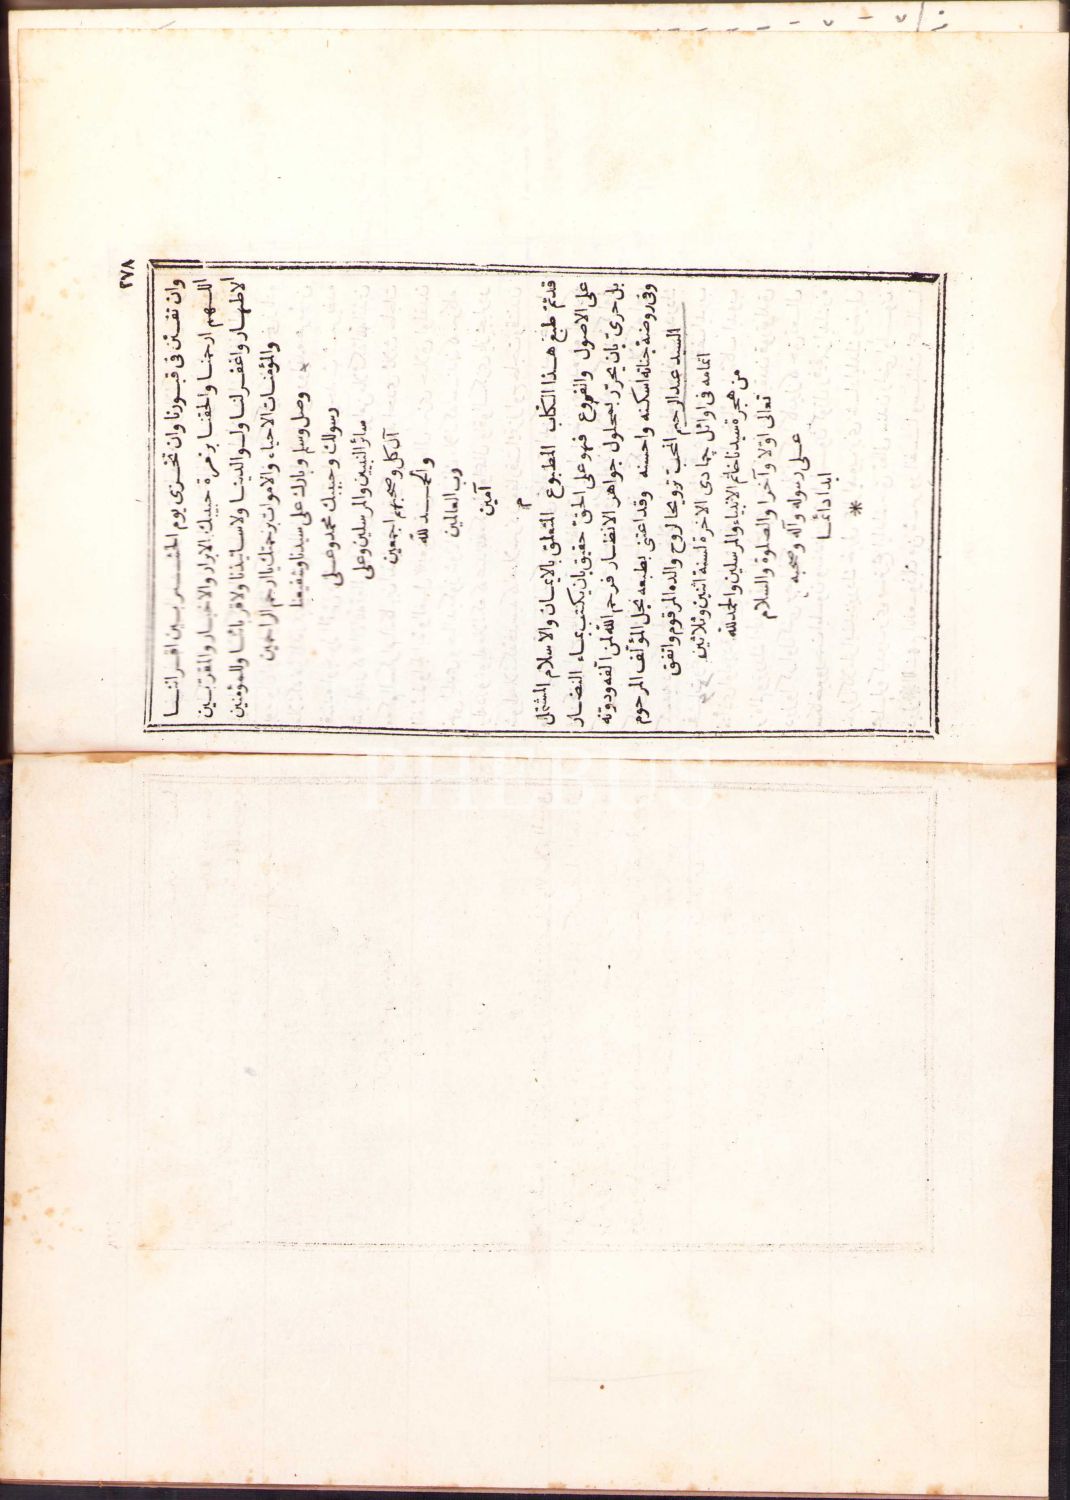 ٢٧٨
وان تفتن فى قبورنا وان تخزى يوم الحشر بين اقراننا
اللهم ارحمنا والحقنا بزمرة حبيبك الابرار والاخيار والمقربين
الاطهار واغفر لنا ولوالدينا ولاساتيذنا ولاقربائنا وللمؤمنين
والمؤمنات الاحياء والاموات برحمتك يا ارحم الراحمين
وصل وسلم وبارك على سيدنا وشفيعنا
رسولك وحبيبك محمد وعلى
سائر النبيين والمرسلين وعلى
آل كل وصحبهم اجمعين
والحمد لله
رب العالمين
آمين
م
قد تم طبع هذا الكتاب المطبوع المتعلق بالايمان والاسلام المشتمل
على الاصول والفروع فهو على الحق حقيق بان يكتب بماء النضار
بل حرى بان يحرر بمحلول جواهر الانظار فرحم الله لمن الفه ودونه
وفى روضة جنانه اسكنه واحسنه وقد اعتنى بطبعه نجل المؤلف المرحوم
السيد عبد الرحيم المحب ترويحا لروح والده المرقوم واتفق
اتمامه فى اوائل جمادى الاخرة لسنة اثنين وثلاثين
من هجرة سيدنا خاتم الانبياء والمرسلين والحمد لله
تعالى اولا وآخرا والصلوة والسلام
على رسوله وآله وصحبه
ابدا دائما
*
PHEBUS